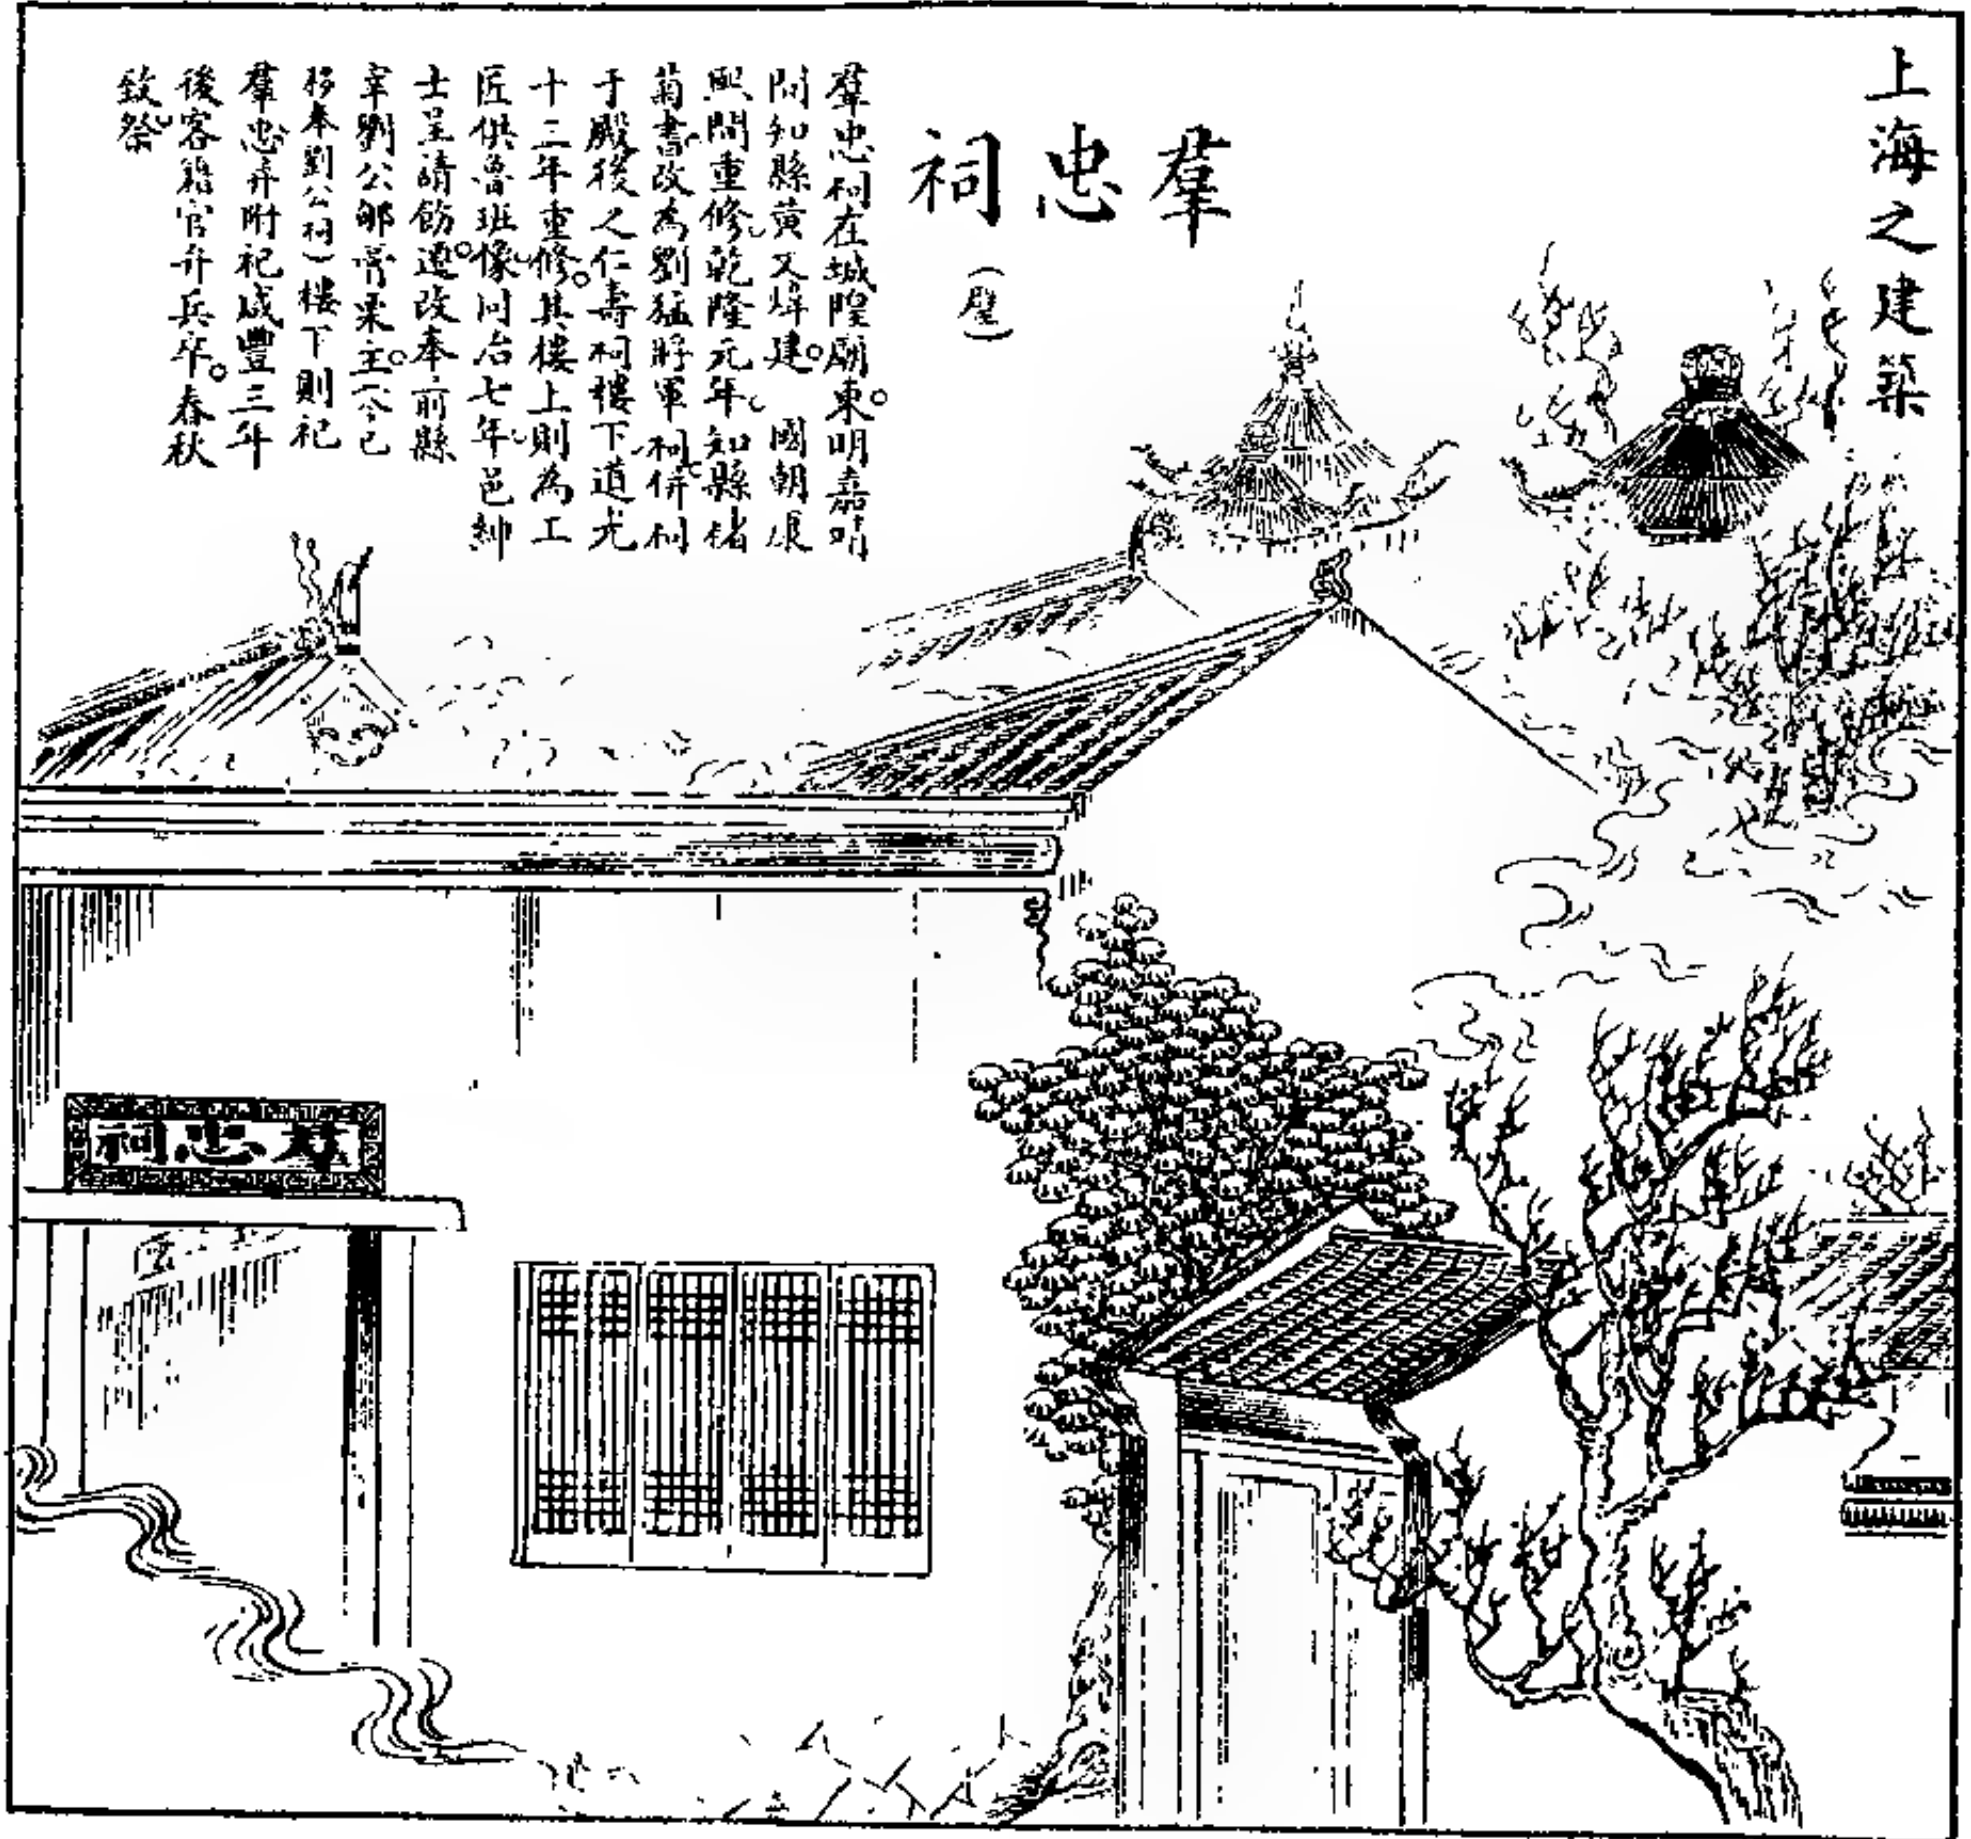 上海之建築
羣忠祠
(璧)
羣忠祠在城隍廟東。明嘉靖
間知縣黃文煒建。國朝康
熙間重修、乾隆元年、知縣褚
菊書改為劉猛將軍祠、併祠
于殿後之仁壽祠樓下道光
十三年重修。其樓上則為工
匠供魯班像、同治七年、邑紳
士呈請飭遷。改奉前縣
宰劉公郇膏栗主。(今已
移奉劉公祠)樓下則祀
羣忠并附祀咸豐三年
後客籍官弁兵卒。春秋
致祭
羣忠祠